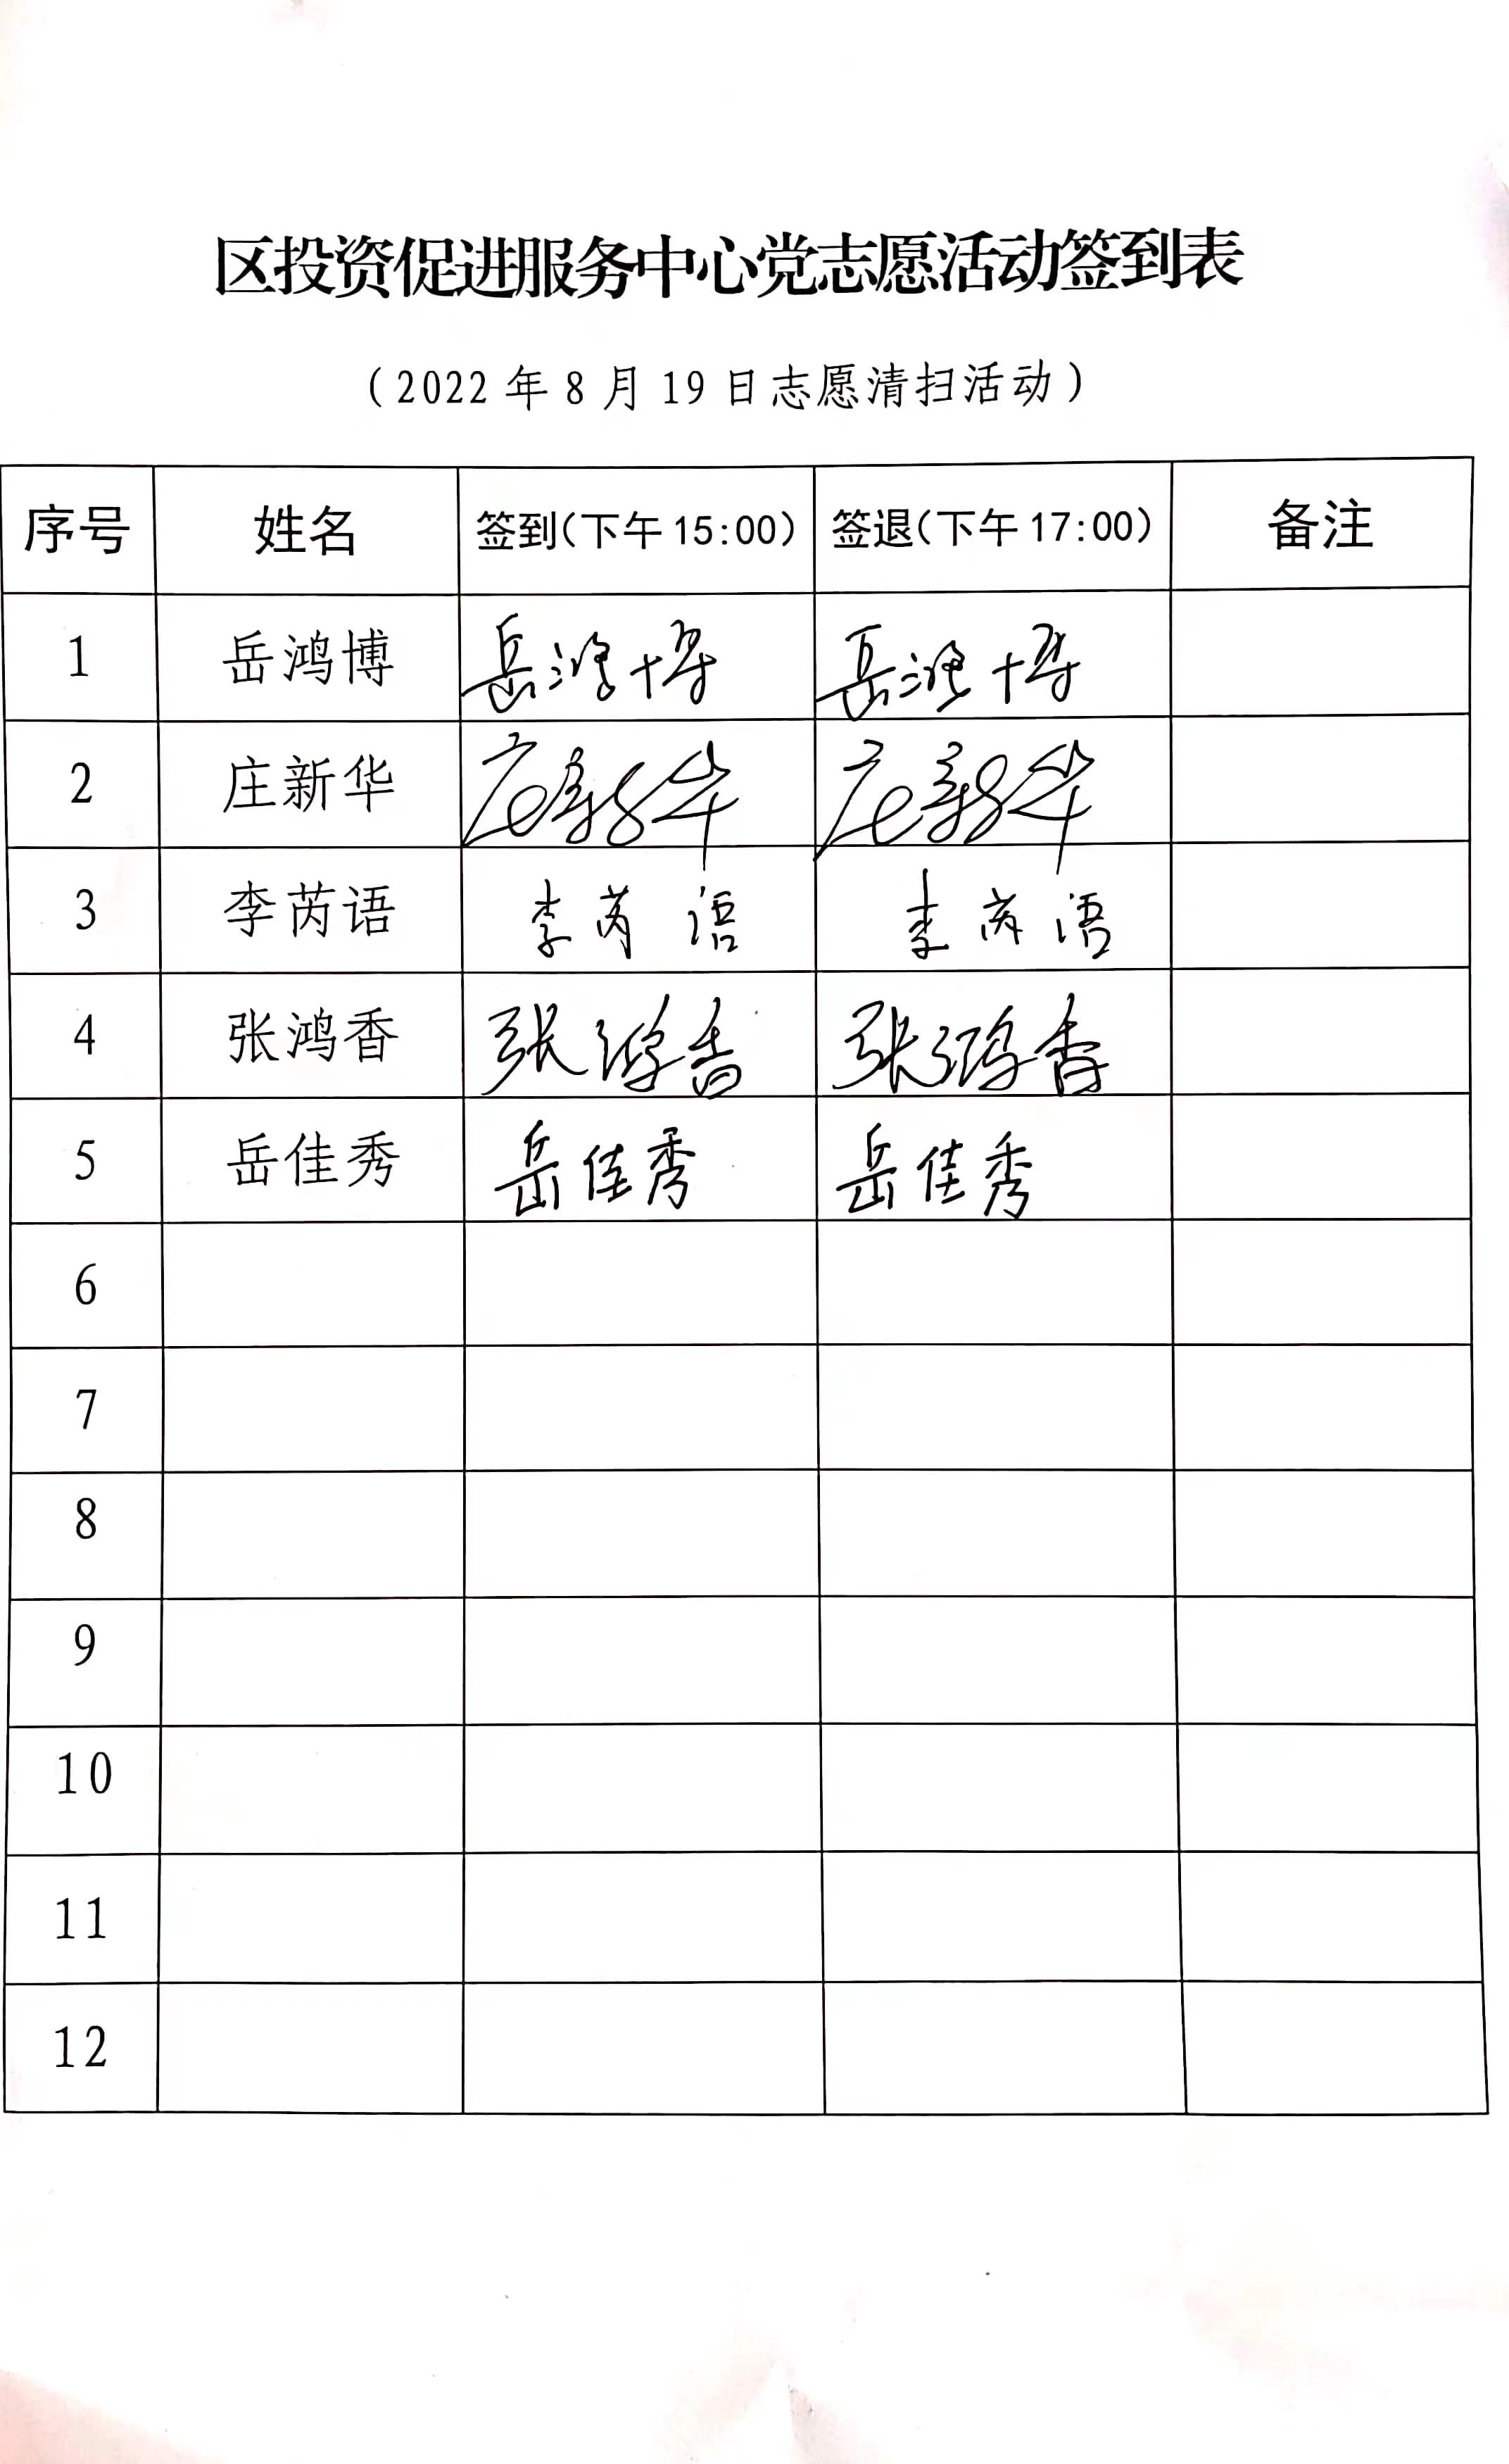 区投资促进服务中心党志愿活动签到表
（2022年8月19日志愿清扫活动）
序号 姓名 签到（下午15:00） 签退（下午17:00） 备注
1 岳鸿博 岳鸿博 岳鸿博
2 庄新华 庄新华 庄新华
3 李芮语 李芮语 李芮语
4 张鸿香 张鸿香 张鸿香
5 岳佳秀 岳佳秀 岳佳秀
6
7
8
9
10
11
12